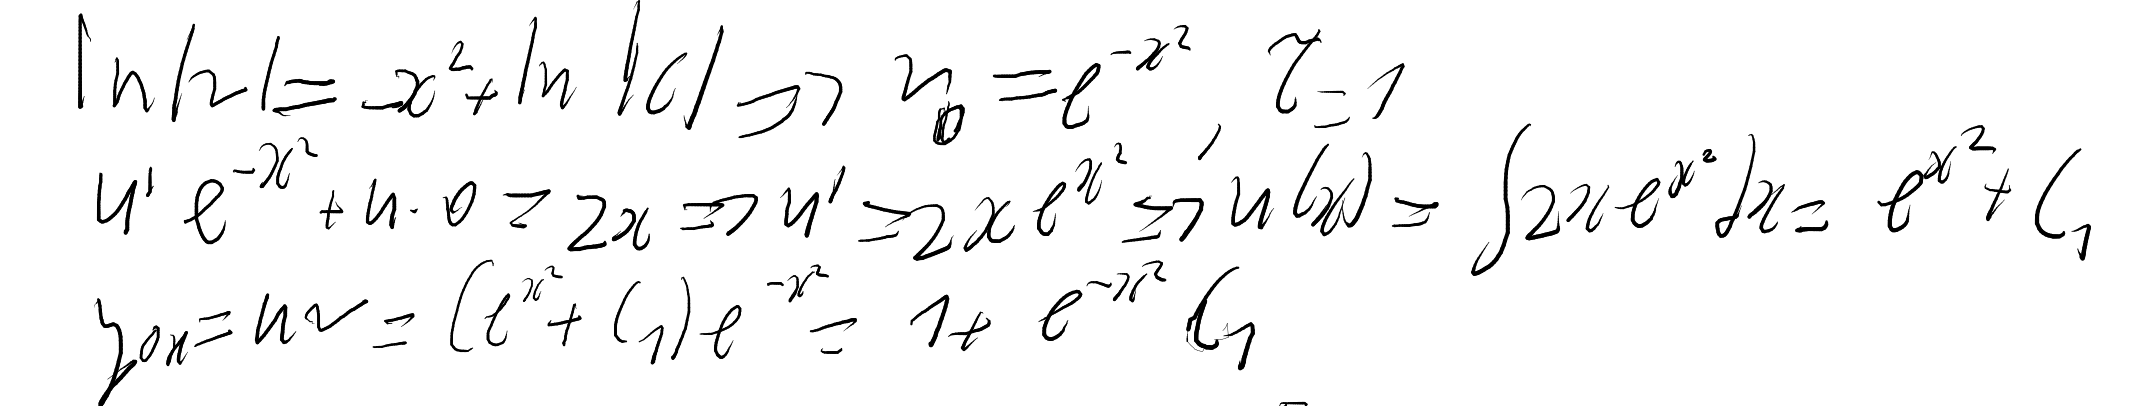 ln|v| = -x² + ln|C| => v₀ = e^(-x²), C = 1
u' e^(-x²) + u · 0 = 2x => u' = 2x e^(x²) => u(x) = ∫2x e^(x²) dx = e^(x²) + C₁
y₀ₙ = uv = (e^(x²) + C₁) e^(-x²) = 1 + e^(-x²) C₁